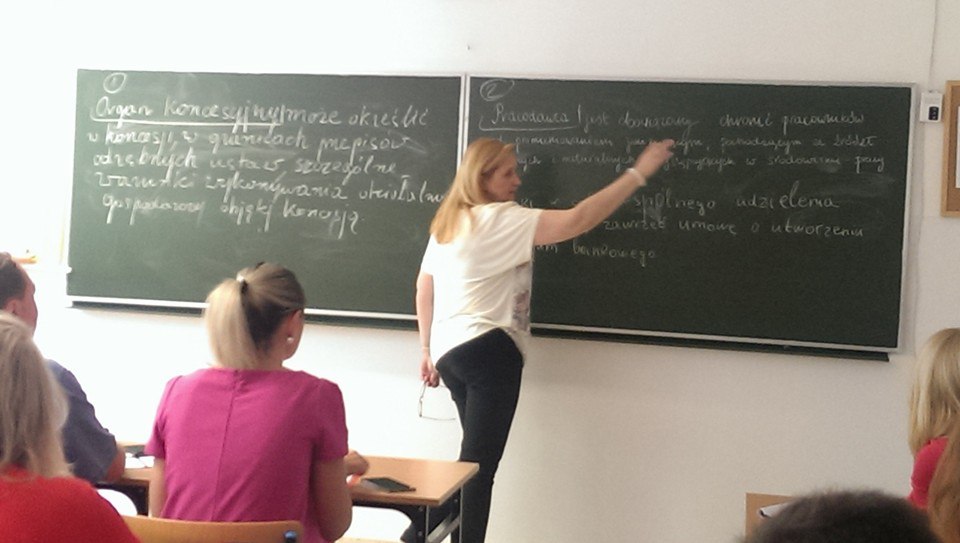 1
Organ koncesyjny może określić
w koncesji, w granicach przepisów
odrębnych ustaw szczególne
warunki wykonywania działaln
gospodarczej objętej koncesją.
2
Pracodawca jest obowiązany chronić pracowników
promieniowaniem jonizującym, pochodzącym ze źródeł
i naturalnych występujących w środowisku pracy
w spólnego udzielenia
zawrzeć umowę o utworzeniu
bankowego